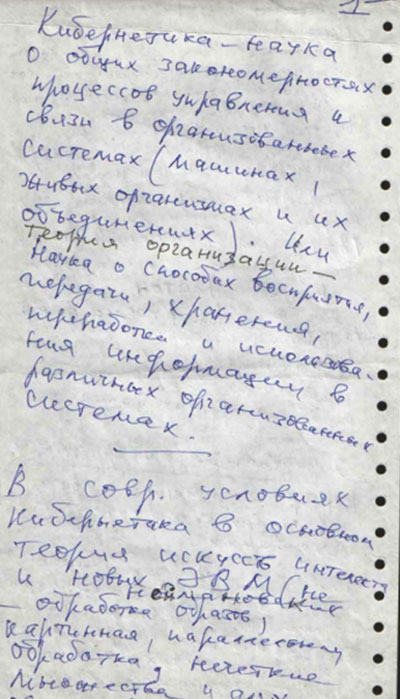 1
Кибернетика – наука
о общих закономерностях
процессов управления и
связи в организованных
системах (машинах,
живых организмах и их
объединениях). Или
Теория организации –
Наука о способах восприятия,
передачи, хранения,
переработки и использова-
ния информации в
различных организованных
системах.
В совр. условиях
Кибернетика в основном
теория искусств интелекта
и новых ЭВМ (не
неймановских
– обработка образов,
картинная, параллельная
обработка, нечеткие
множества и